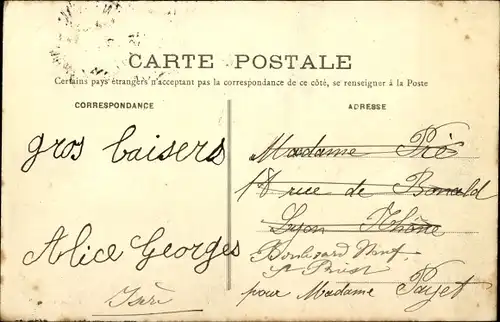 CARTE POSTALE
Certains pays étrangers n'acceptant pas la correspondance de ce côté, se renseigner à la Poste
CORRESPONDANCE
gros baisers
Alice Georges
Isère
ADRESSE
Madame Prés
18 rue de Bonald
Lyon Rhône
Boulevard Neuf
St Priest
pour Madame Payet